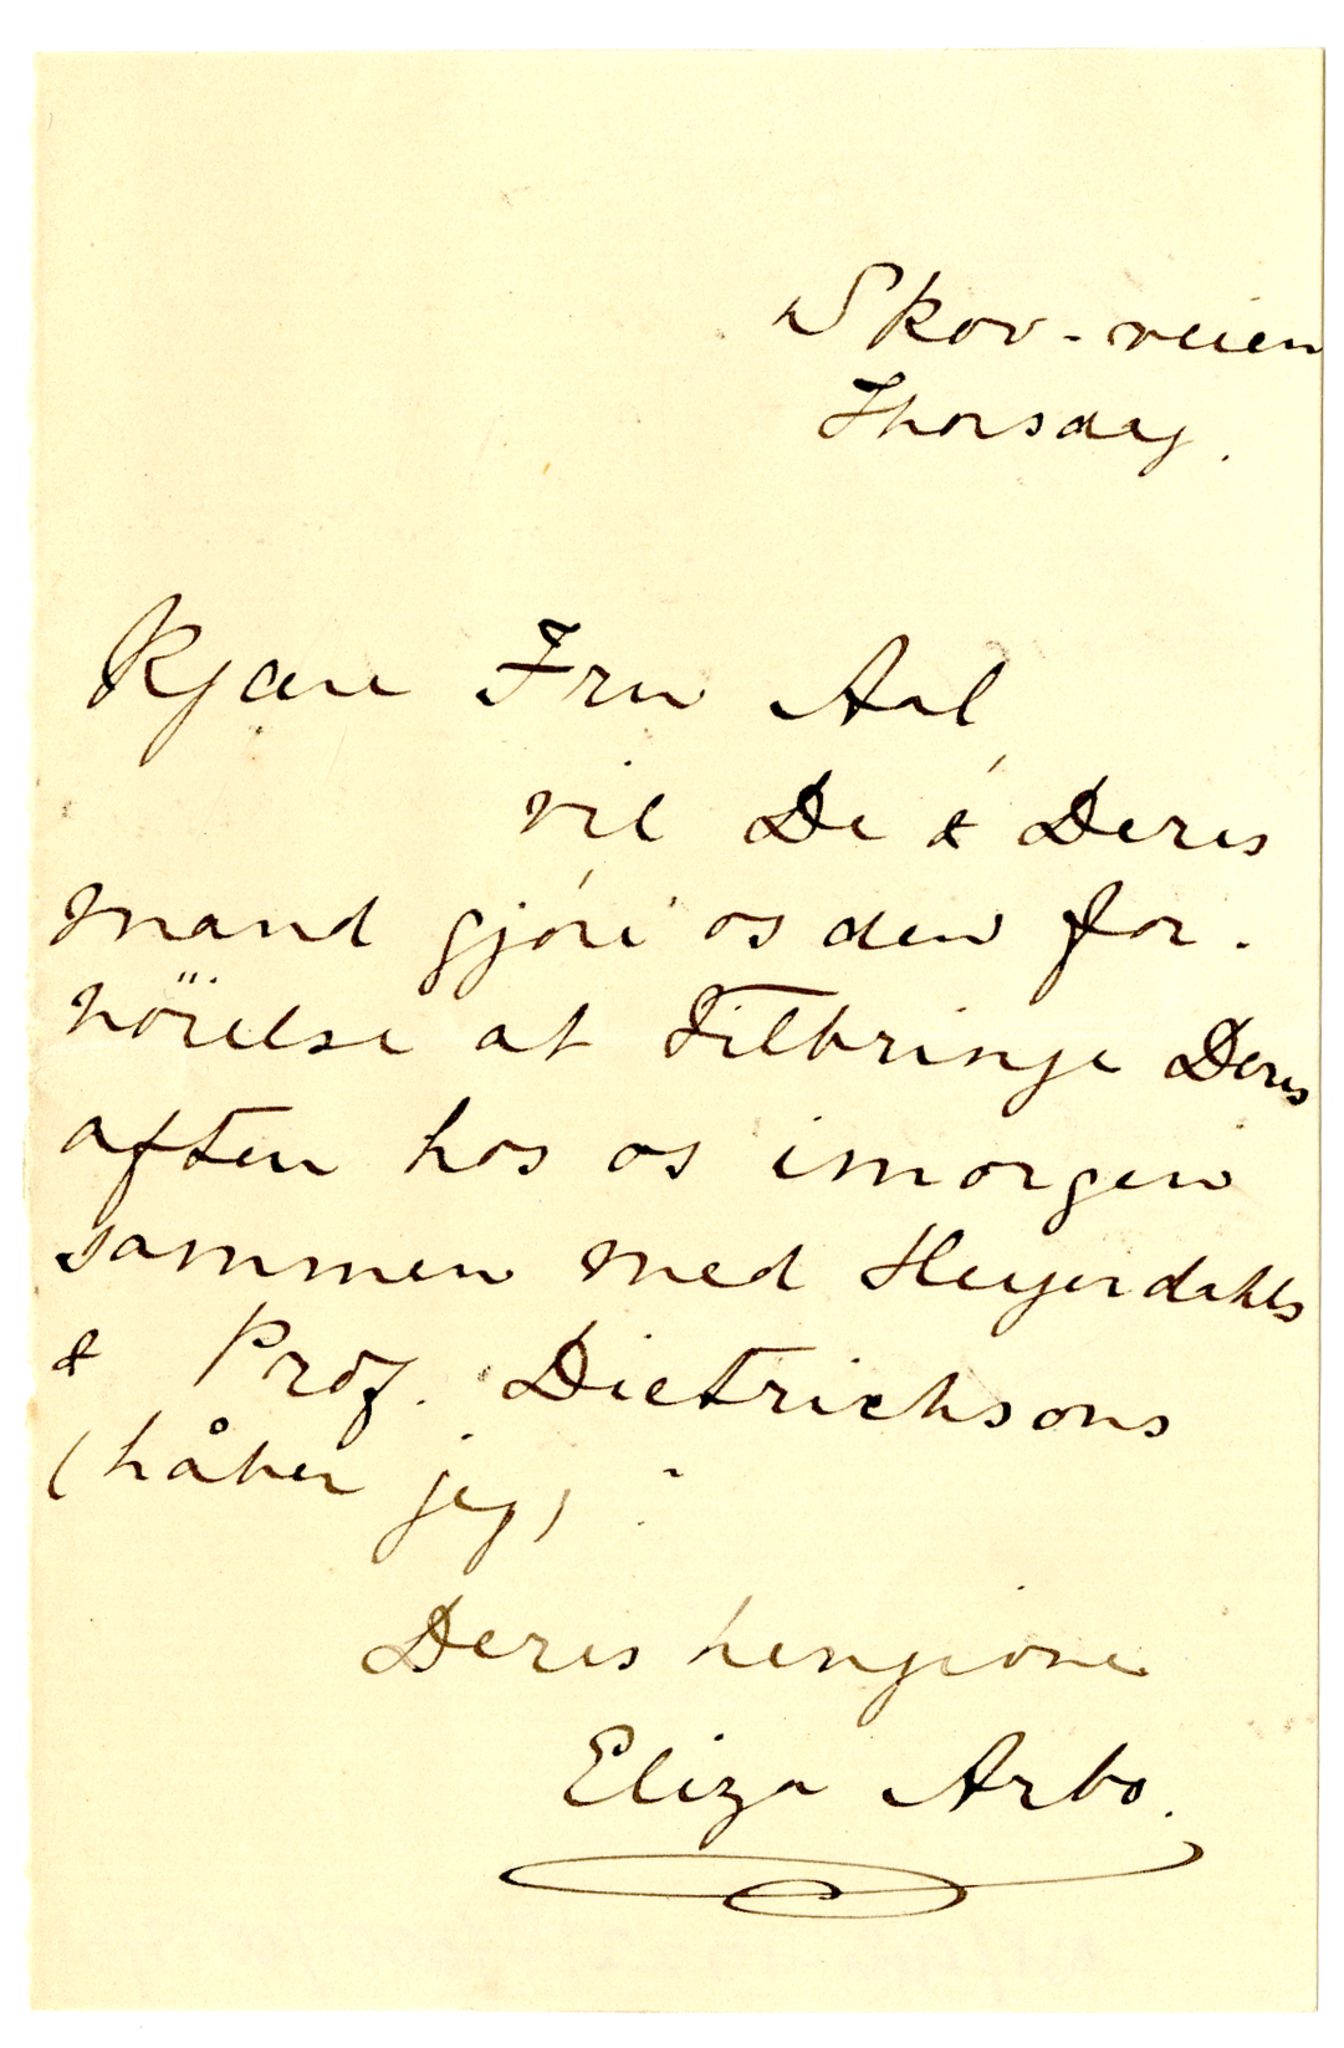 Skov-veien
Thorsdag.
Kjære Fru Aal,
vil De & Deres
mand gjöre os den for-
nöielse at tilbringe Deres
aften hos os imorgen
sammen med Heyerdahls
& Prof. Dietrichsons
(håber jeg).
Deres hengivne
Eliza Arbo.